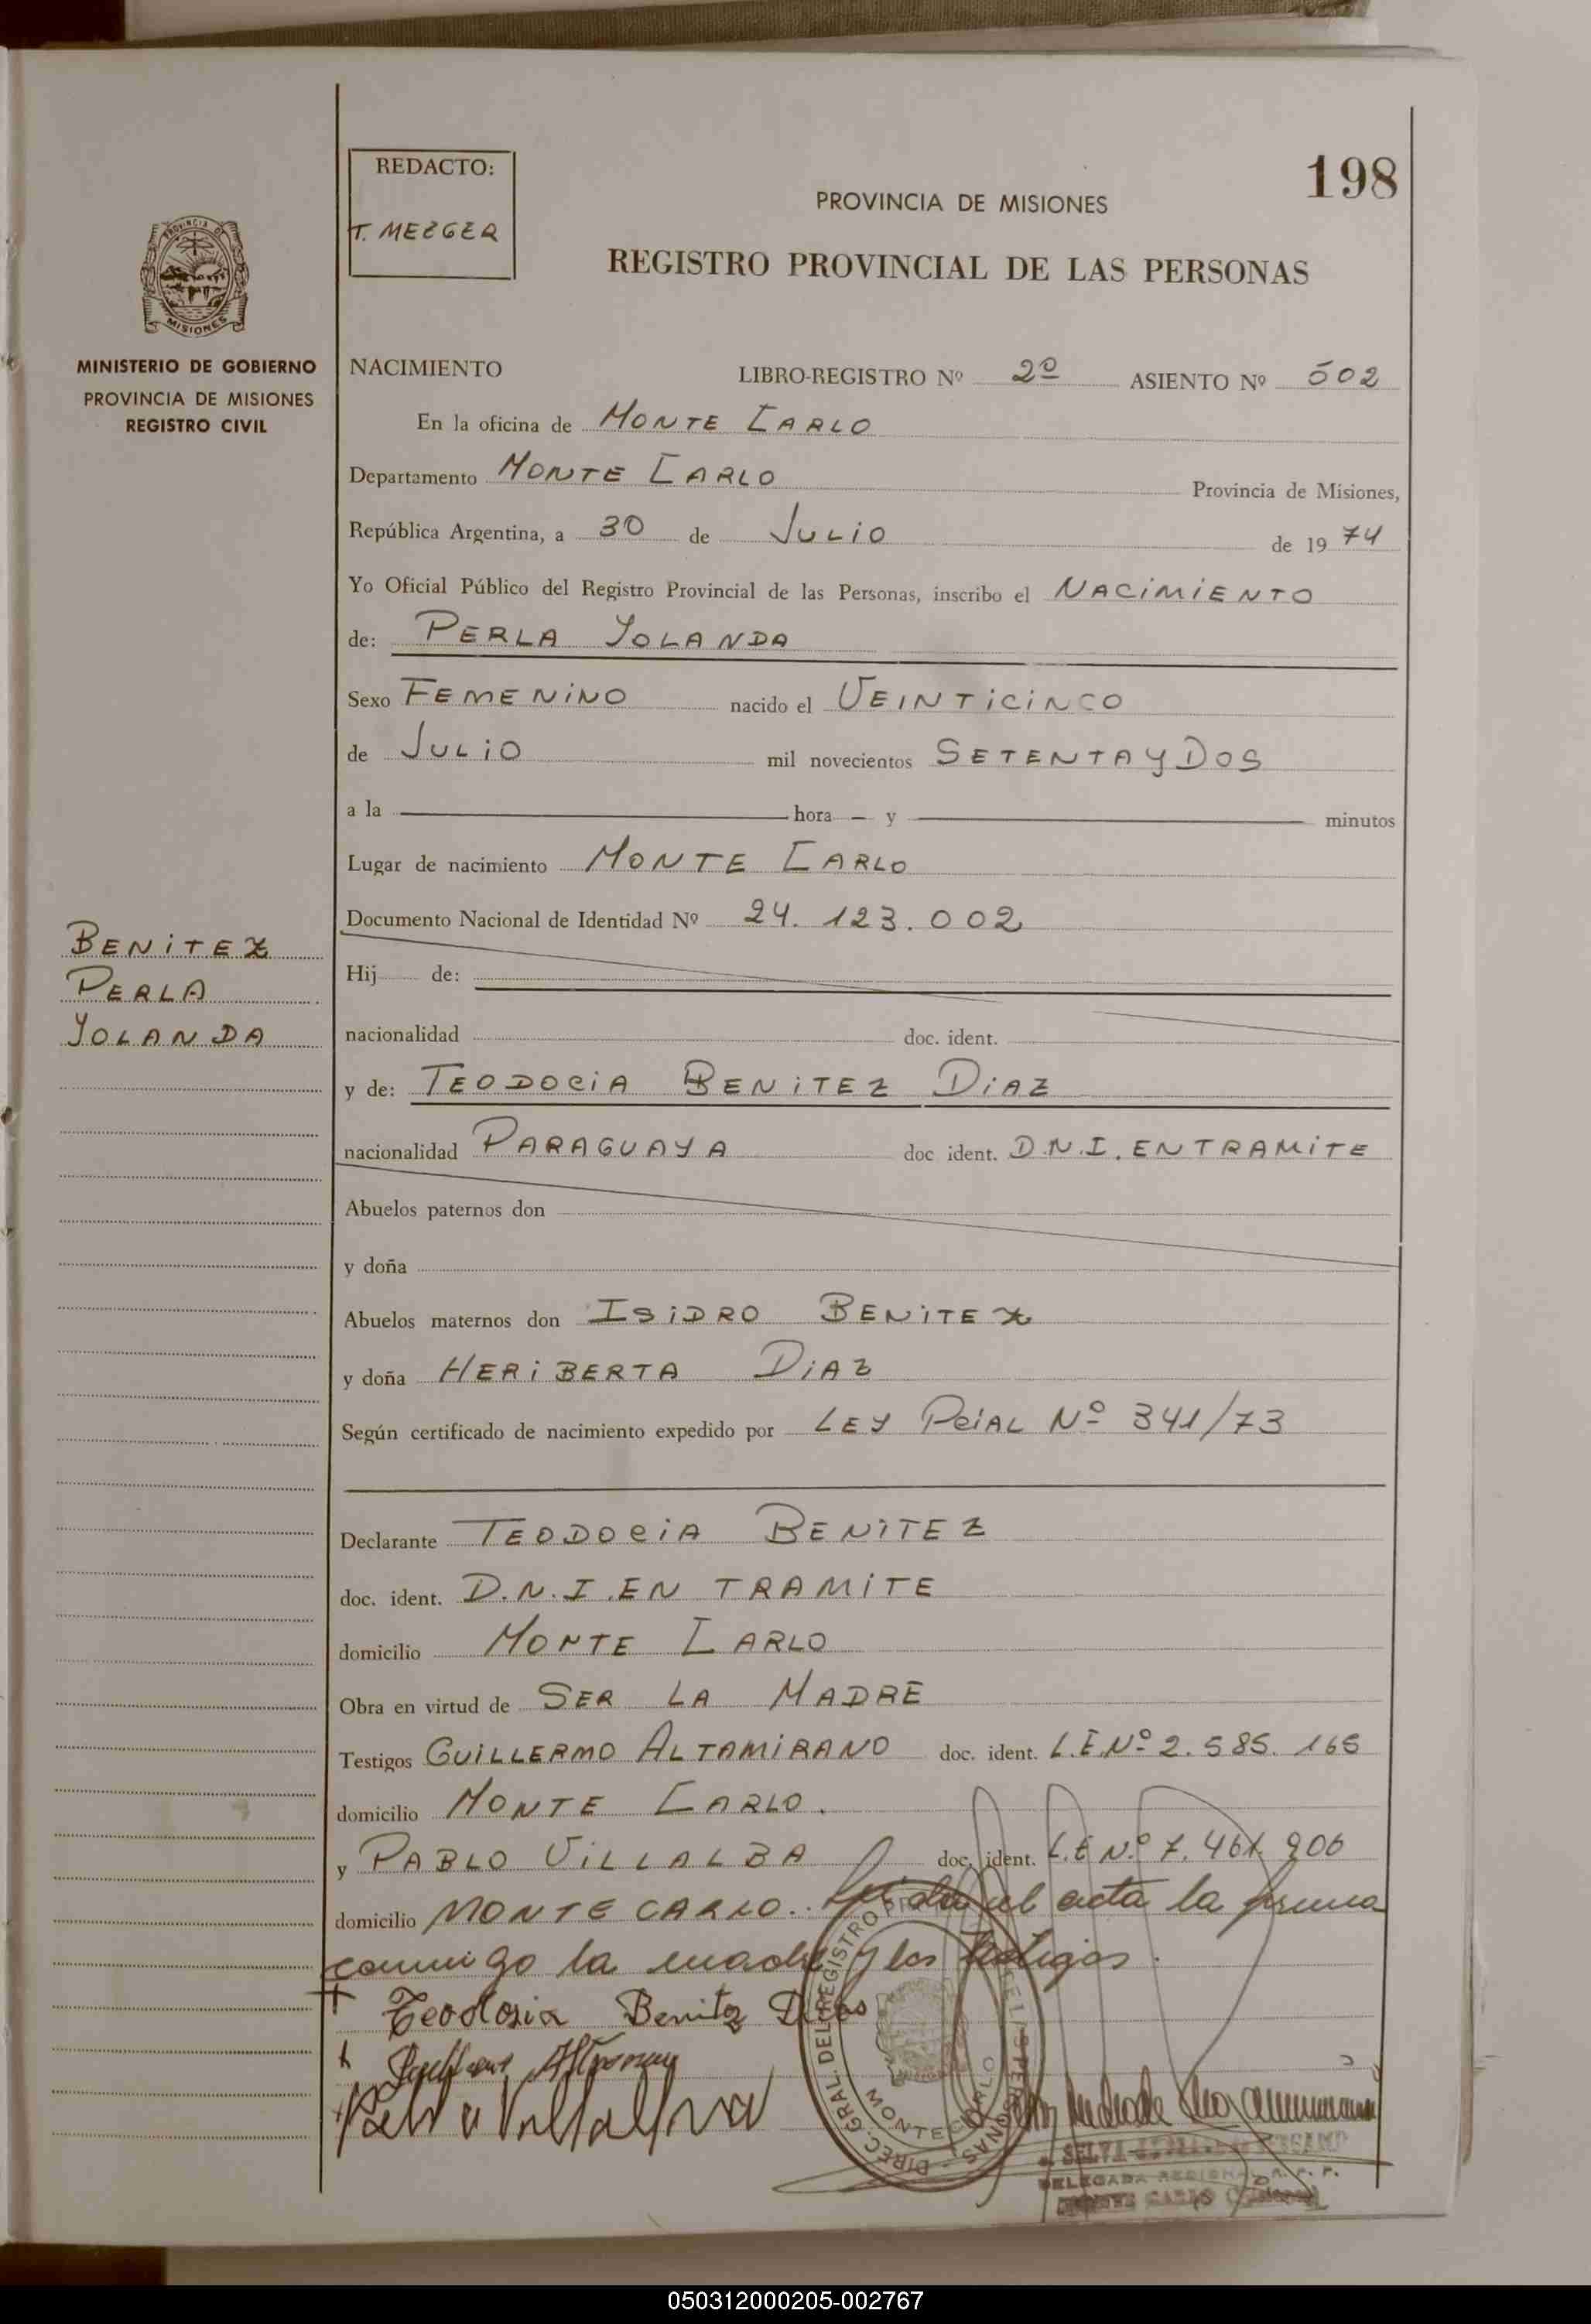 REDACTO:
T. MEZGER
198
PROVINCIA DE MISIONES
REGISTRO PROVINCIAL DE LAS PERSONAS
PROVINCIA D
MISIONES
MINISTERIO DE GOBIERNO
PROVINCIA DE MISIONES
REGISTRO CIVIL
NACIMIENTO LIBRO-REGISTRO Nº 2º ASIENTO Nº 502
En la oficina de MONTE CARLO
Departamento MONTE CARLO Provincia de Misiones,
República Argentina, a 30 de JULIO de 1974
Yo Oficial Público del Registro Provincial de las Personas, inscribo el NACIMIENTO
de: PERLA YOLANDA
Sexo FEMENINO nacido el VEINTICINCO
de JULIO mil novecientos SETENTA Y DOS
a la hora — y minutos
Lugar de nacimiento MONTE CARLO
Documento Nacional de Identidad Nº 24.123.002
BENITEZ
PERLA
YOLANDA
Hij de:
nacionalidad doc. ident.
y de: TEODOCIA BENITEZ DIAZ
nacionalidad PARAGUAYA doc ident. D.N.I. EN TRAMITE
Abuelos paternos don
y doña
Abuelos maternos don ISIDRO BENITEZ
y doña HERIBERTA DIAZ
Según certificado de nacimiento expedido por LEY PCIAL Nº 341/73
Declarante TEODOCIA BENITEZ
doc. ident. D.N.I. EN TRAMITE
domicilio MONTE CARLO
Obra en virtud de SER LA MADRE
Testigos GUILLERMO ALTAMIRANO doc. ident. L.E.Nº 2.585.165
domicilio MONTE CARLO.
y PABLO VILLALBA doc. ident. L.E Nº 7.461.906
domicilio MONTE CARLO. Leída el acta la firma
conmigo la madre y los testigos.
Teodosia Benitez Dias
Pablo Villalva
DIREC. GRAL. DEL REGISTRO PERSONAS
MONTECARLO
SELVA
DELEGADA REGIONAL R. P. P.
MONTE CARLO
050312000205-002767